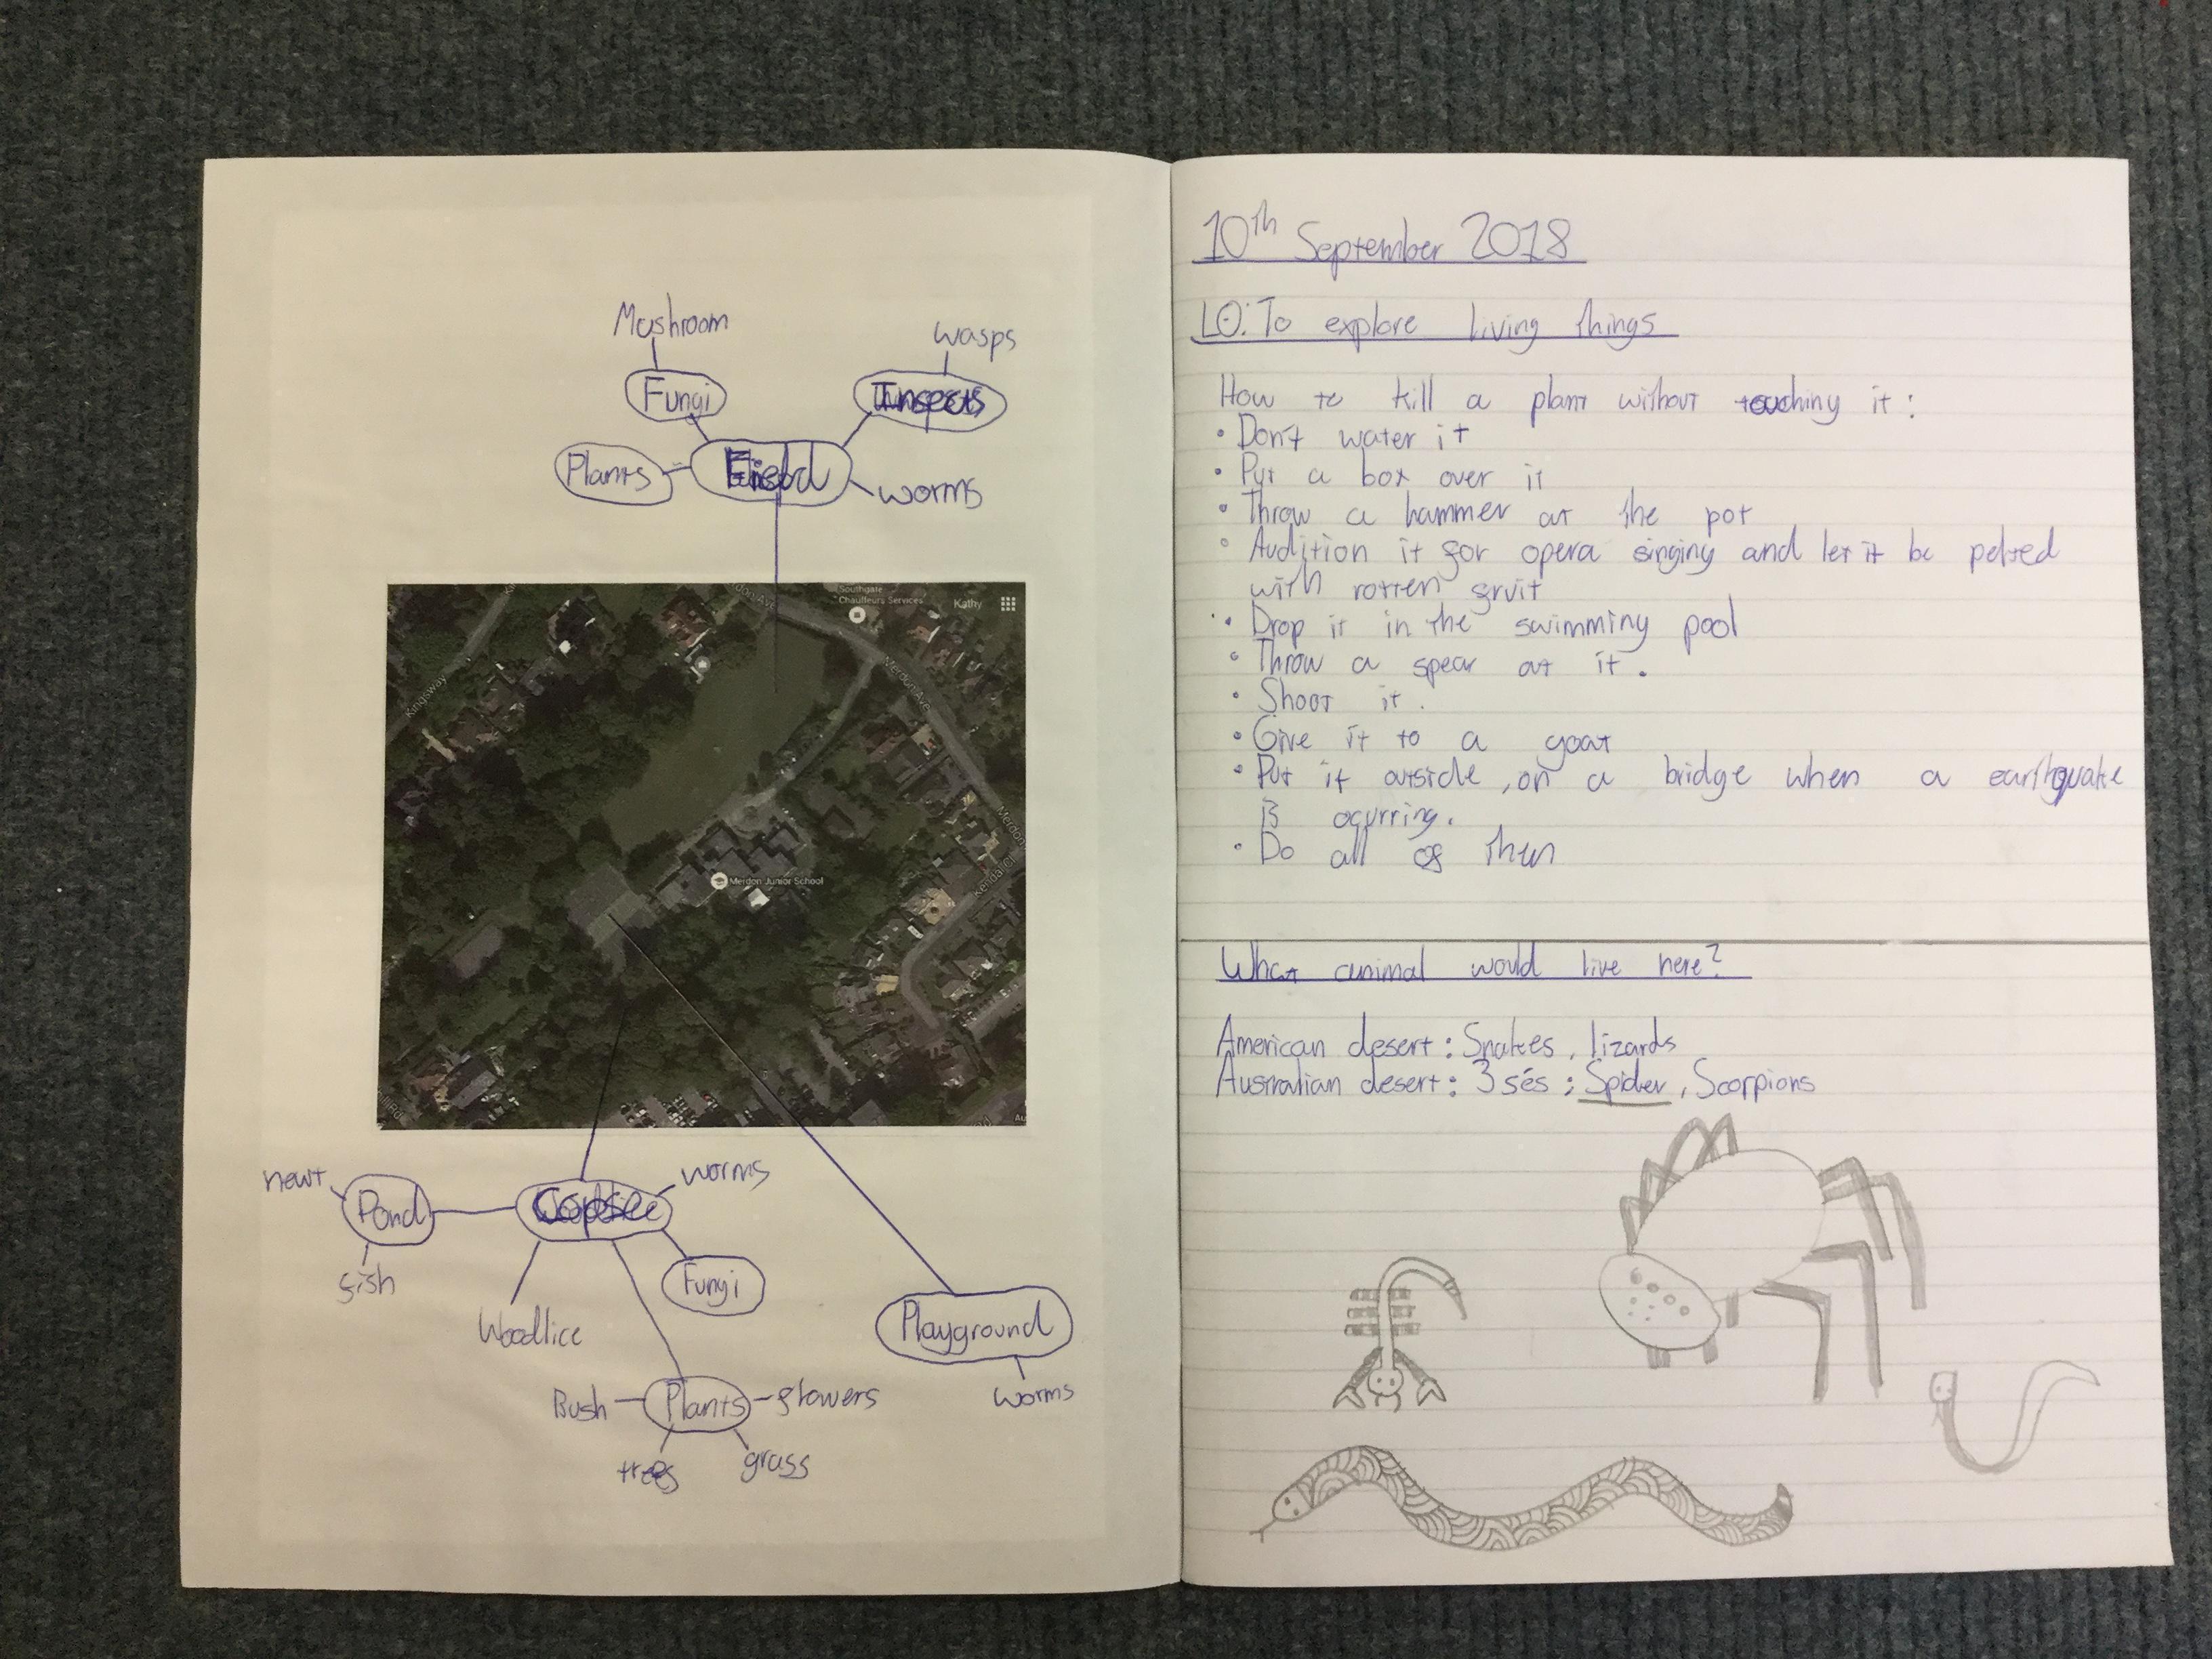 Mushroom
wasps
Fungi
Insects
Plants
Field
worms
Southgate
Chauffeurs Services
Kathy
Kingsway
Merdon Ave
Merdon
Merdon Junior School
newt
Pond
Copse
worms
fish
Fungi
Woodlice
Playground
Bush
Plants
flowers
worms
trees
grass
10th September 2018
LO: To explore living things
How to kill a plant without touching it:
• Don't water it
• Put a box over it
• Throw a hammer at the pot
• Audition it for opera singing and let it be pelted
with rotten fruit
• Drop it in the swimming pool
• Throw a spear at it.
• Shoot it.
• Give it to a goat
• Put it outside, on a bridge when a earthquake
is ocurring.
• Do all of them
What animal would live here?
American desert: Snakes, lizards
Australian desert: 3 s'es; Spider, Scorpions